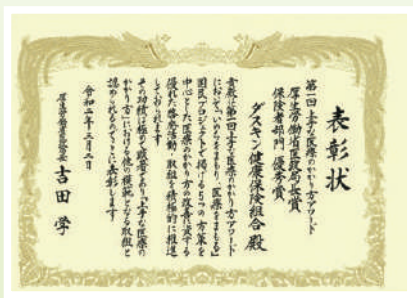 表彰状
第一回上手な医療のかかり方アワード
厚生労働省医政局長賞
保険者部門 優秀賞
ダスキン健康保険組合 殿
貴殿は第一回上手な医療のかかり方アワード
において「いのちをまもり、医療をまもる」
国民プロジェクトで掲げる5つの方策を
中心とした医療のかかり方の改善に資する
優れた啓発活動・取組を積極的に推進
しておられます
その功績は極めて顕著であり「上手な医療の
かかり方」における他の模範となる取組と
認められるのでここに表彰します
令和二年三月二日
厚生労働省医政局長 吉田 学